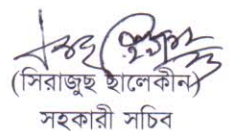 (সিরাজুছ ছালেকীন)
সহকারী সচিব